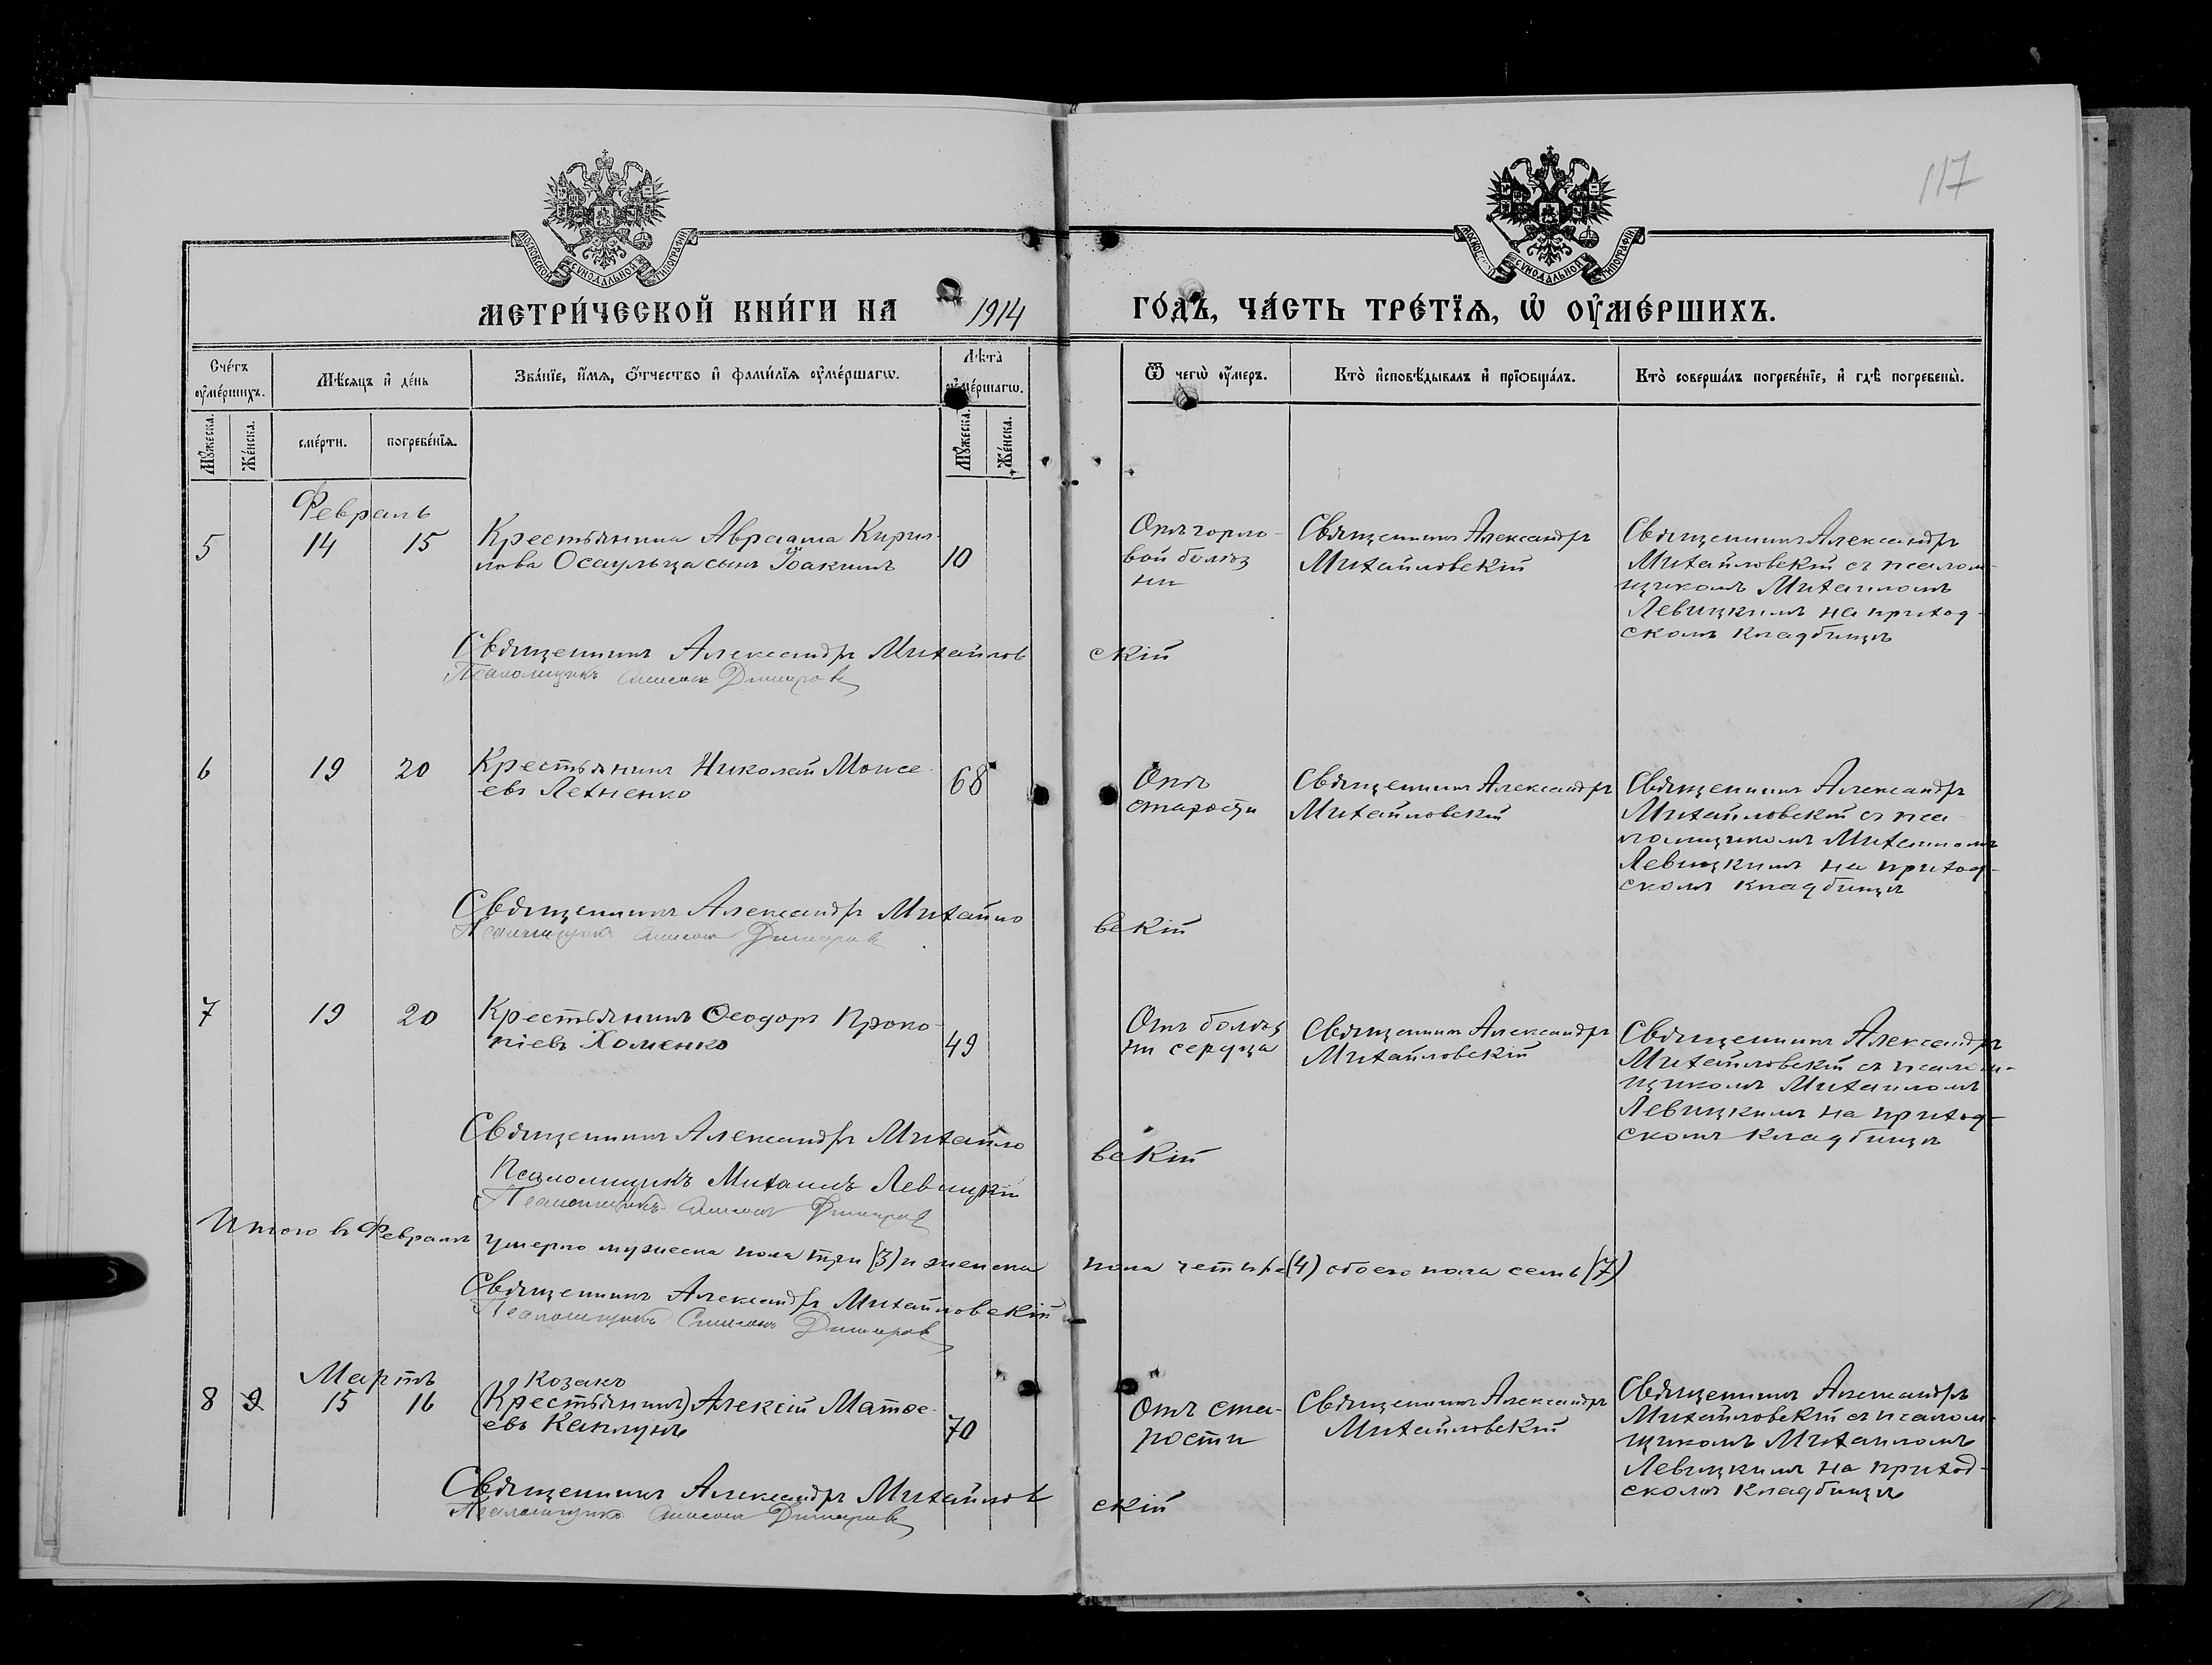 117
МОСКОВСКОЙ СУНОДАЛЬНОЙ ТИПОГРАФІИ
МОСКОВСКОЙ СУНОДАЛЬНОЙ ТИПОГРАФІИ
МЕТРИ́ЧЕСКОЙ КНИ́ГИ НА 1914 ГО́ДЪ, ЧА́СТЬ ТРЕ́ТЇѦ, Ѡ҆ ОУ҆МЕ́РШИХЪ.
Сче́тъ оу҆ме́ршихъ.
Мѣ́сѧцъ и҆ де́нь
Зва́нїе, и҆́мѧ, ѻ҆́тчество и҆ фами́лїѧ оу҆ме́ршагѡ.
Лѣ́та оу҆ме́ршагѡ.
Ѿ чегѡ̀ оу҆́меръ.
Кто̀ и҆сповѣ́дывалъ и҆ прїѡбща́лъ.
Кто̀ соверша́лъ погребе́нїе, и҆ гдѣ̀ погребены̀.
Мꙋ́жеска.
Же́нска.
сме́рти.
погребе́нїѧ.
Мꙋ́жеска.
Же́нска.
Февраль
5 14 15
Крестьянина Авраама Кирил-
лова Осаульца сынъ Іоакимъ
10
Отъ горло-
вой болѣз
ни
Священникъ Александръ
Михайловскій
Священникъ Александръ
Михайловскій съ псалом-
щикомъ Михаиломъ
Левицкимъ на приход-
скомъ кладбищѣ
Священникъ Александръ Михайловскій
Псаломщикъ
6 19 20
Крестьянинъ Николай Моисе-
евъ Лехненко
68
Отъ
старости
Священникъ Александръ
Михайловскій
Священникъ Александръ
Михайловскій съ пса-
ломщикомъ Михаиломъ
Левицкимъ на приход-
скомъ кладбищѣ
Священникъ Александръ Михайловскій
Псаломщикъ
7 19 20
Крестьянинъ Ѳеодоръ Проко-
піевъ Хоменко
49
Отъ болѣз
ни сердца
Священникъ Александръ
Михайловскій
Священникъ Александръ
Михайловскій съ псалом-
щикомъ Михаиломъ
Левицкимъ на приход-
скомъ кладбищѣ
Священникъ Александръ Михайловскій
Псаломщикъ Михаилъ Левицкій
Псаломщикъ
Итого въ Февралѣ умерло мужеска пола три (3) и женска пола четыре (4) обоего пола семь (7)
Священникъ Александръ Михайловскій
Псаломщикъ
Мартъ
8 9 15 16
Козакъ
(Крестьянинъ) Алексій Матѳе-
евъ Каплунъ
70
Отъ ста-
рости
Священникъ Александръ
Михайловскій
Священникъ Александръ
Михайловскій съ псалом-
щикомъ Михаиломъ
Левицкимъ на приход-
скомъ кладбищѣ
Священникъ Александръ Михайловскій
Псаломщикъ